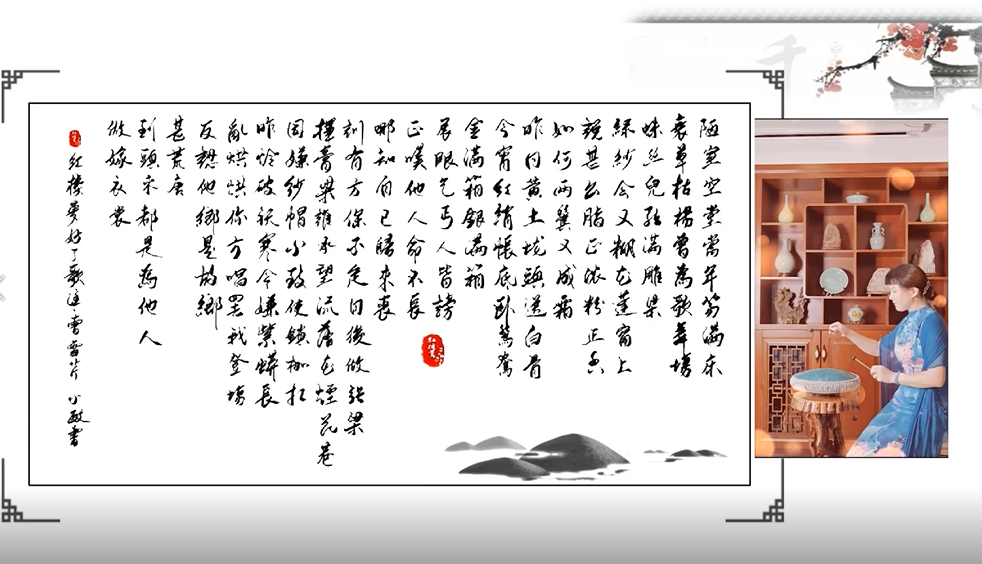 陋室空堂當年笏滿床
衰草枯楊曾為歌舞場
蛛丝兒結滿雕梁
綠紗今又糊在蓬窗上
說甚么脂正濃粉正香
如何兩鬢又成霜
昨日黃土壠頭送白骨
今宵紅綃帳底臥鴛鴦
金滿箱銀滿箱
展眼乞丐人皆謗
正嘆他人命不長
哪知自己歸來喪
訓有方保不定日後做強梁
擇膏粱誰承望流落在煙花巷
因嫌紗帽小致使鎖枷扛
昨憐破襖寒今嫌紫蟒長
亂烘烘你方唱罷我登場
反認他鄉是故鄉
甚荒唐
到頭來都是為他人
做嫁衣裳
紅樓夢好了歌注 雪片 小敏書